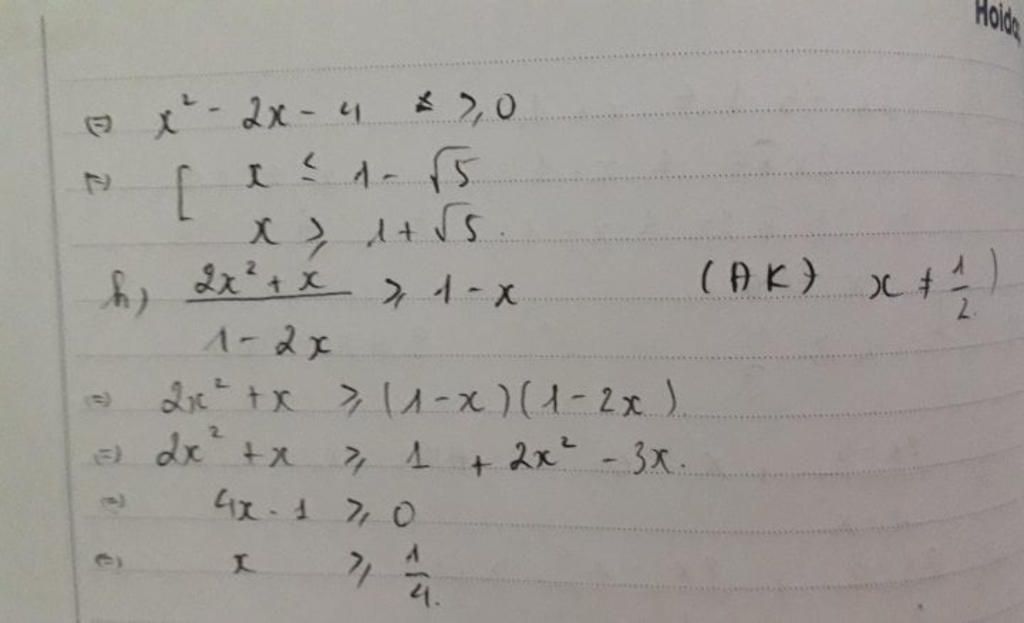 Hoida
⇔ x² - 2x - 4 ≥ 0
⇔ [ x ≤ 1 - √5
x ≥ 1 + √5.
h) \frac{2x² + x}{1 - 2x} ≥ 1 - x (ĐK) x ≠ \frac{1}{2})
⇔ 2x² + x ≥ (1 - x)(1 - 2x)
⇔ 2x² + x ≥ 1 + 2x² - 3x.
⇔ 4x - 1 ≥ 0
⇔ x ≥ \frac{1}{4}.